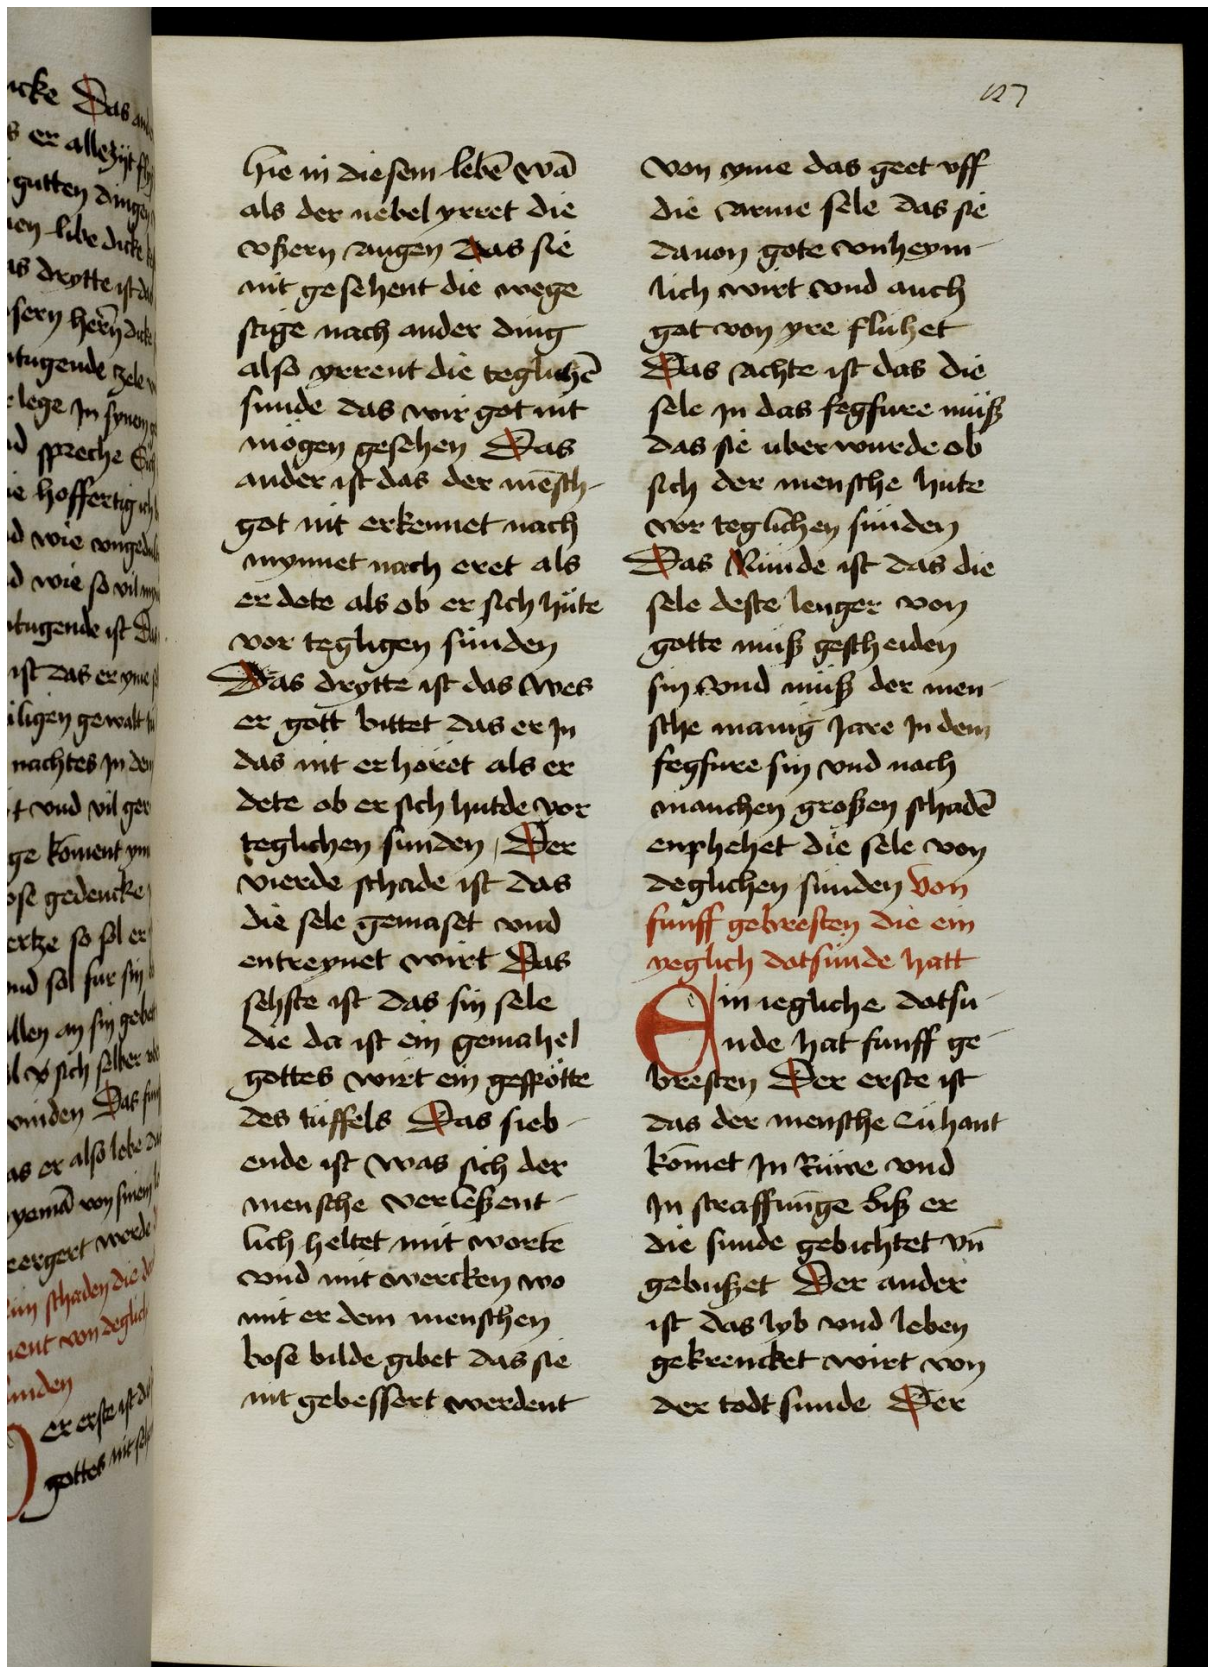 127
hie in diesem lebē wā
als der nebel yrret die
vßern augen Das sie
nit gesehent die wege
stige nach ander ding
also yrrent die teglichē
sunde das wir got nit
mögen gesehen Das
ander ist das der mēsch
got nit erkennet nach
mynnet noch eret als
er dete als ob er sich hüte
vor tegligen sünden
Das drytte ist das wes
er gott bittet das er jn
das nit erhöret als er
dete ob er sich hutde vor
teglichen sunden Der
vierde schade ist das
die sele gemaset vnd
entreynet wirt Das
sehste ist das sin sele
die da ist ein gemahel
gottes wirt ein gespötte
des tüffels Das sieb-
ende ist was sich der
mensche verleßent-
lich heltet mit worte
vnd mit wercken wo
mit er dem menschen
bose bilde gibet das sie
nit gebessert werdent
von yme das geet vff
die arme sele das sie
dauon gote vnheym-
lich wirt vnd auch
got von yre flühet
Das achte ist das die
sele jn das fegfure müß
das sie uber wurde ob
sich der mensche hüte
vor teglichen sünden
Das Nünde ist das die
sele deste lenger von
gotte müß gescheiden
sin vnd müß der men-
sche manig jare jn dem
fegfure sin vnd noch
manchen großen schadē
enphehet die sele von
deglichen sünden von
funff gebresten die ein
yeglich dotsünde hatt
Ein iegliche dotsu-
nde hat funff ge-
bresten Der erste ist
das der mensche zühant
kōmet jn Rüwe vnd
jn straffunge biß er
die sunde gebichtet vñ
gebußet Der ander
ist das lyb vnd leben
gekrencket wirt von
der todt sunde Der